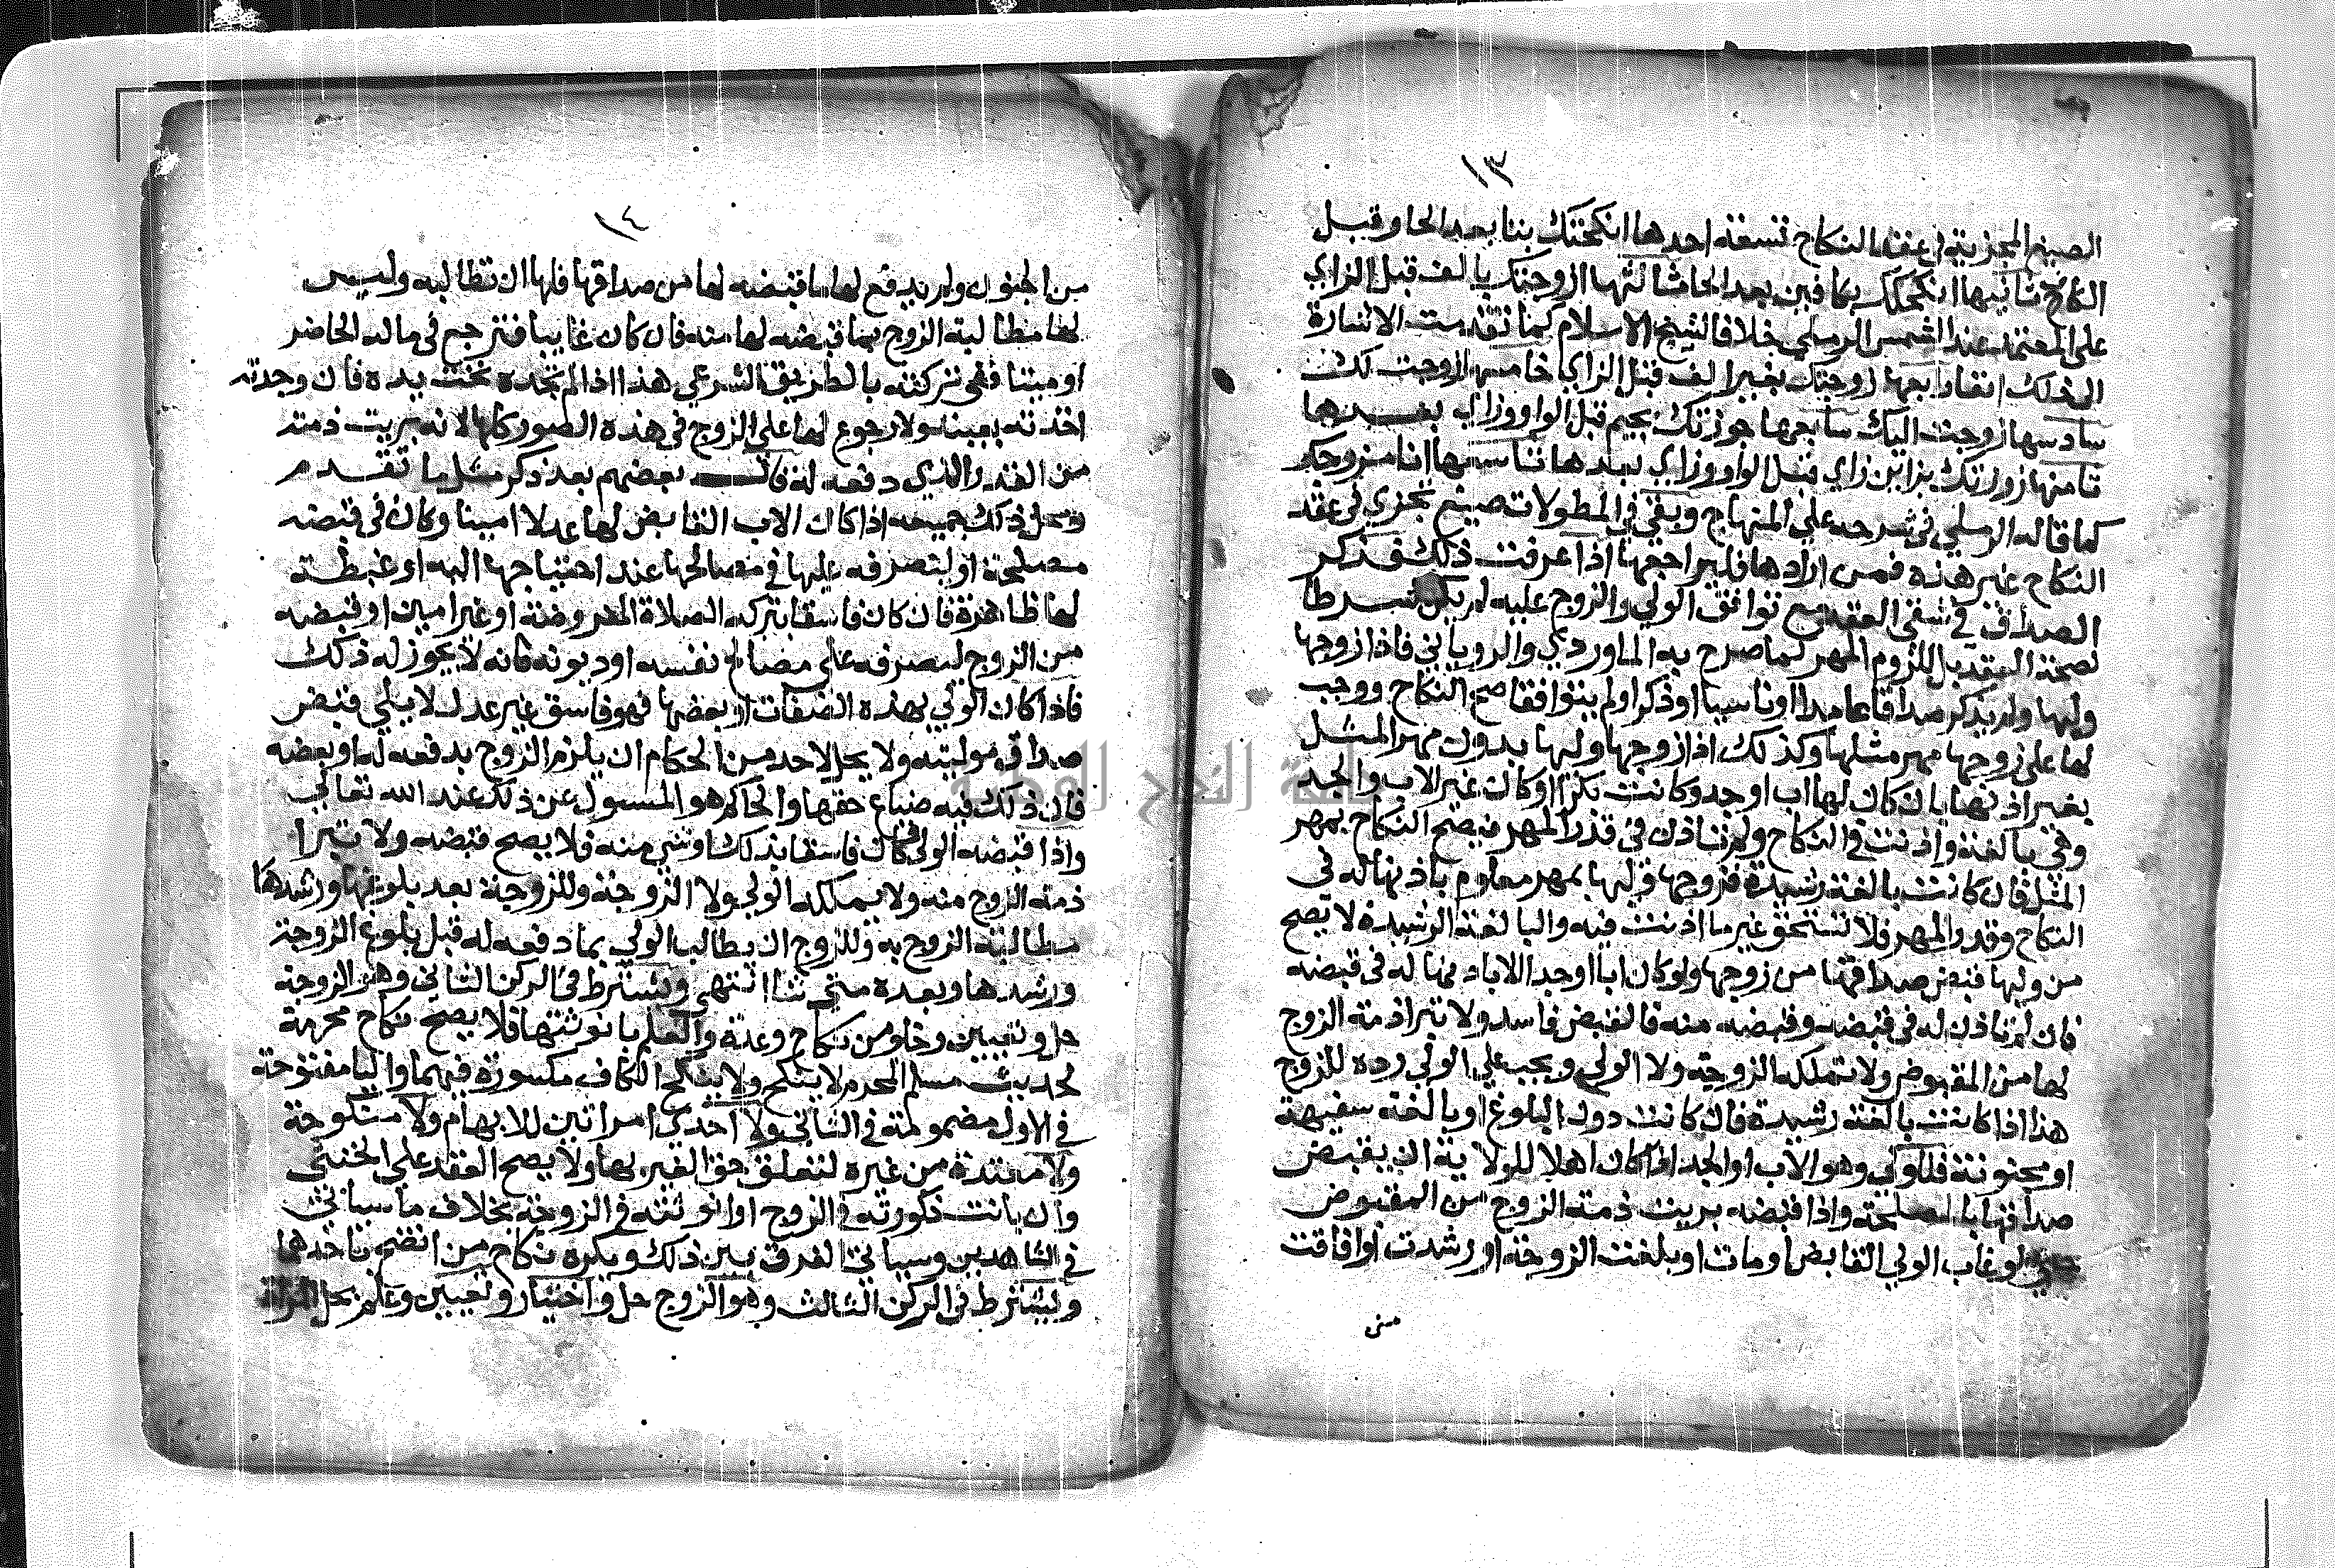 ١٣
الصيغ المجزية في عقد النكاح تسعة احدها انكحتك بتا بعد الحا وقبل
الكاف ثانيها انكحكك بكافين بعد الحا ثالثها ازوجتك بالف قبل الزاي
على المعتمد عند الشمس الرملي خلافا لشيخ الاسلام كما تقدمت الاشارة
الى ذلك انفا رابعها زوجتك بغير الف قبل الزاي خامسها زوجت لك
سادسها زوجت اليك سابعها جوزتك بجيم قبل الواو وزاي بعدها
ثامنها زوزتك بزايين زاي قبل الواو وزاي بعدها تاسعها انا مزوجك
كما قاله الرملي في شرحه على المنهاج وبقي في المطولات صيغ تجزي في عقد
النكاح غير هذه فمن ارادها فليراجعها اذا عرفت ذلك فذكر
الصداق في شقي العقد مع توافق الولي والزوج عليه لم يكن شرطا
لصحة العقد بل للزوم المهر كما صرح به الماوردي والروياني فاذا زوجها
وليها ولم يذكر صداقا عامدا او ناسيا او ذكر اولم يتوافقا صح النكاح ووجب
لها على زوجها مهر مثلها وكذلك اذا زوجها وليها بدون مهر المثل
بغير اذنها بان كان لها اب او جد وكانت بكرا او كان غير الاب والجد
وهي بالغة واذنت في النكاح ولم تاذن في قدر المهر فيصح النكاح بمهر
المثل فان كانت بالغة رشيدة فزوجها وليها بمهر معلوم باذنها له في
النكاح وقدر المهر فلا تستحق غير ما اذنت فيه والبالغة الرشيدة لا يصح
من وليها قبض صداقها من زوجها ولو كان ابا او جدا الا باذنها له في قبضه
فان لم تاذن له في قبضه وقبضه منه فالقبض فاسد ولا تبرا ذمة الزوج
لها من المقبوض ولا تملكه الزوجة ولا الولي ويجب على الولي رده للزوج
هذا اذا كانت بالغة رشيدة فان كانت دون البلوغ او بالغة سفيهة
او مجنونة فللولي وهو الاب او الجد اذا كان اهلا للولاية ان يقبض
صداقها بالمصلحة واذا قبضه بريت ذمة الزوج من المقبوض
حتى لو غاب الولي القابض او مات او بلغت الزوجة او رشدت او افاقت
من
١٤
من الجنون ولم يدفع لها ما قبضه لها من صداقها فلها ان تطالبه وليس
لها مطالبة الزوج بما قبضه لها منه فان كان غايبا فترجع في ماله الحاضر
او ميتا ففي تركته بالطريق الشرعي هذا اذا لم تجده تحت يده فان وجدته
اخذته بعينه ولا رجوع لها على الزوج في هذه الصور كلها لانه بريت ذمته
من القدر الذي دفعه له قال بعضهم بعد ذكر مثل ما تقدم
ومحل ذلك جميعه اذا كان الاب القابض لها عدلا امينا وكان في قبضه
مصلحة او ليتصرفه عليها في مصالحها عند احتياجها اليه او غبطة
لها ظاهرة فان كان فاسقا بتركه الصلاة المفروضة او غير امين او قبضه
من الزوج ليصرفه على مصالح نفسه او ديونه فانه لا يجوز له ذلك
فاذا كان الولي بهذه الصفات او بعضها فهو فاسق غير عدل لا يلي قبض
صداق موليته ولا يحل لاحد من الحكام ان يلزم الزوج بدفعه له او بعضه
فان ذلك فيه ضياع حقها والحاكم هو المسول عن ذلك عند الله تعالى
واذا قبضه الولي وكان فاسقا بذلك او شي منه فلا يصح قبضه ولا تبرا
ذمة الزوج منه ولا يملكه الولي ولا الزوجة وللزوجة بعد بلوغها ورشدها
مطالبة الزوج به وللزوج ان يطالب الولي بما دفعه له قبل بلوغ الزوجة
ورشدها وبعده متى شا انتهى ويشترط في الركن الثاني وهو الزوجة
حل وتعيين وخلو من نكاح وعدة والعلم بانوثتها فلا يصح نكاح محرمة
لحديث مسلم المحرم لا ينكح ولا ينكح الكاف مكسورة فيهما واليا مفتوحة
في الاول مضمومة في الثاني ولا احدى امراتين للابهام ولا منكوحة
ولا معتدة من غيره لتعلق حق الغير بها ولا يصح العقد على الخنثى
وان بانت ذكورته في الزوج او انوثته في الزوجة بخلاف ما سياتي
في الشاهدين وسياتي الفرق بين ذلك ويكره نكاح من اتضح باحدها
ويشترط في الركن الثالث وهو الزوج حل واختيار وتعيين وعلم بحل المراة
جامعة النجاح الوطنية